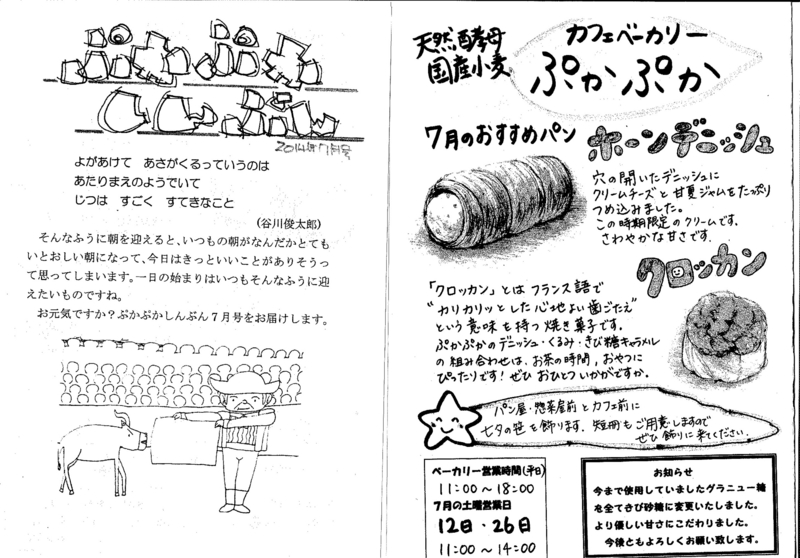 ぷかぷか
しんぶん
2014年7月号
よがあけて　あさがくるっていうのは
あたりまえのようでいて
じつは　すごく　すてきなこと
(谷川俊太郎)
そんなふうに朝を迎えると、いつもの朝がなんだかとても
いとおしい朝になって、今日はきっといいことがありそうっ
て思ってしまいます。一日の始まりはいつもそんなふうに迎
えたいものですね。
お元気ですか？ぷかぷかしんぶん７月号をお届けします。
天然酵母
国産小麦
カフェベーカリー
ぷかぷか
7月のおすすめパン
ホーンデニッシュ
穴の開いたデニッシュに
クリームチーズと甘夏ジャムをたっぷり
つめ込みました。
この時期限定のクリームです。
さわやかな甘さです。
クロッカン
「クロッカン」とはフランス語で
"カリカリッとした心地よい歯ごたえ"
という意味を持つ焼き菓子です。
ぷかぷかのデニッシュ・くるみ・きび糖キャラメル
の組み合わせは、お茶の時間、おやつに
ぴったりです！ぜひおひとついかがですか。
パン屋・惣菜屋前とカフェ前に
七夕の笹を飾ります。短冊もご用意しますので
ぜひ飾りに来てください。
ベーカリー営業時間(平日)
11:00～18:00
7月の土曜営業日
12日・26日
11:00～14:00
お知らせ
今まで使用していましたグラニュー糖
を全てきび砂糖に変更いたしました。
より優しい甘さにこだわりました。
今後ともよろしくお願い致します。